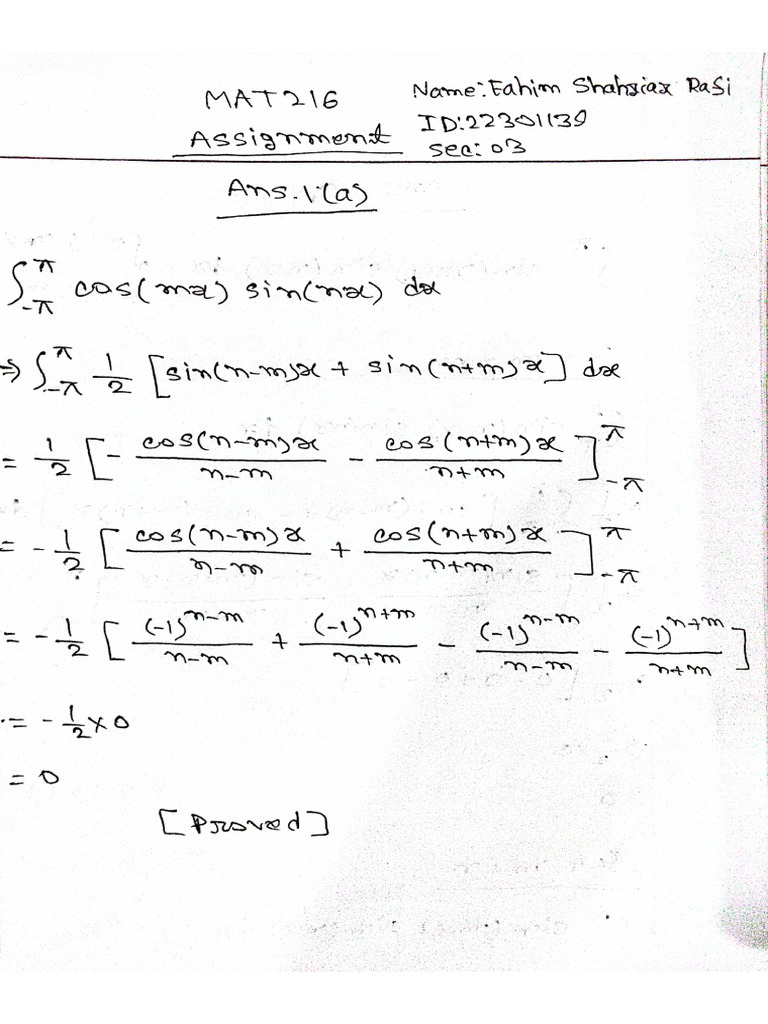 MAT216
Assignment
Name: Fahim Shahriar Rasi
ID:22301139
Sec: 03
Ans.1.(a)
∫_{-π}^{π} cos(mx) sin(nx) dx
⇒ ∫_{-π}^{π} 1/2 [sin(n-m)x + sin(n+m)x] dx
= 1/2 [- cos(n-m)x/(n-m) - cos(n+m)x/(n+m)]_{-π}^{π}
= -1/2 [cos(n-m)x/(n-m) + cos(n+m)x/(n+m)]_{-π}^{π}
= -1/2 [(-1)^{n-m}/(n-m) + (-1)^{n+m}/(n+m) - (-1)^{n-m}/(n-m) - (-1)^{n+m}/(n+m)]
= -1/2 × 0
= 0
[Proved]